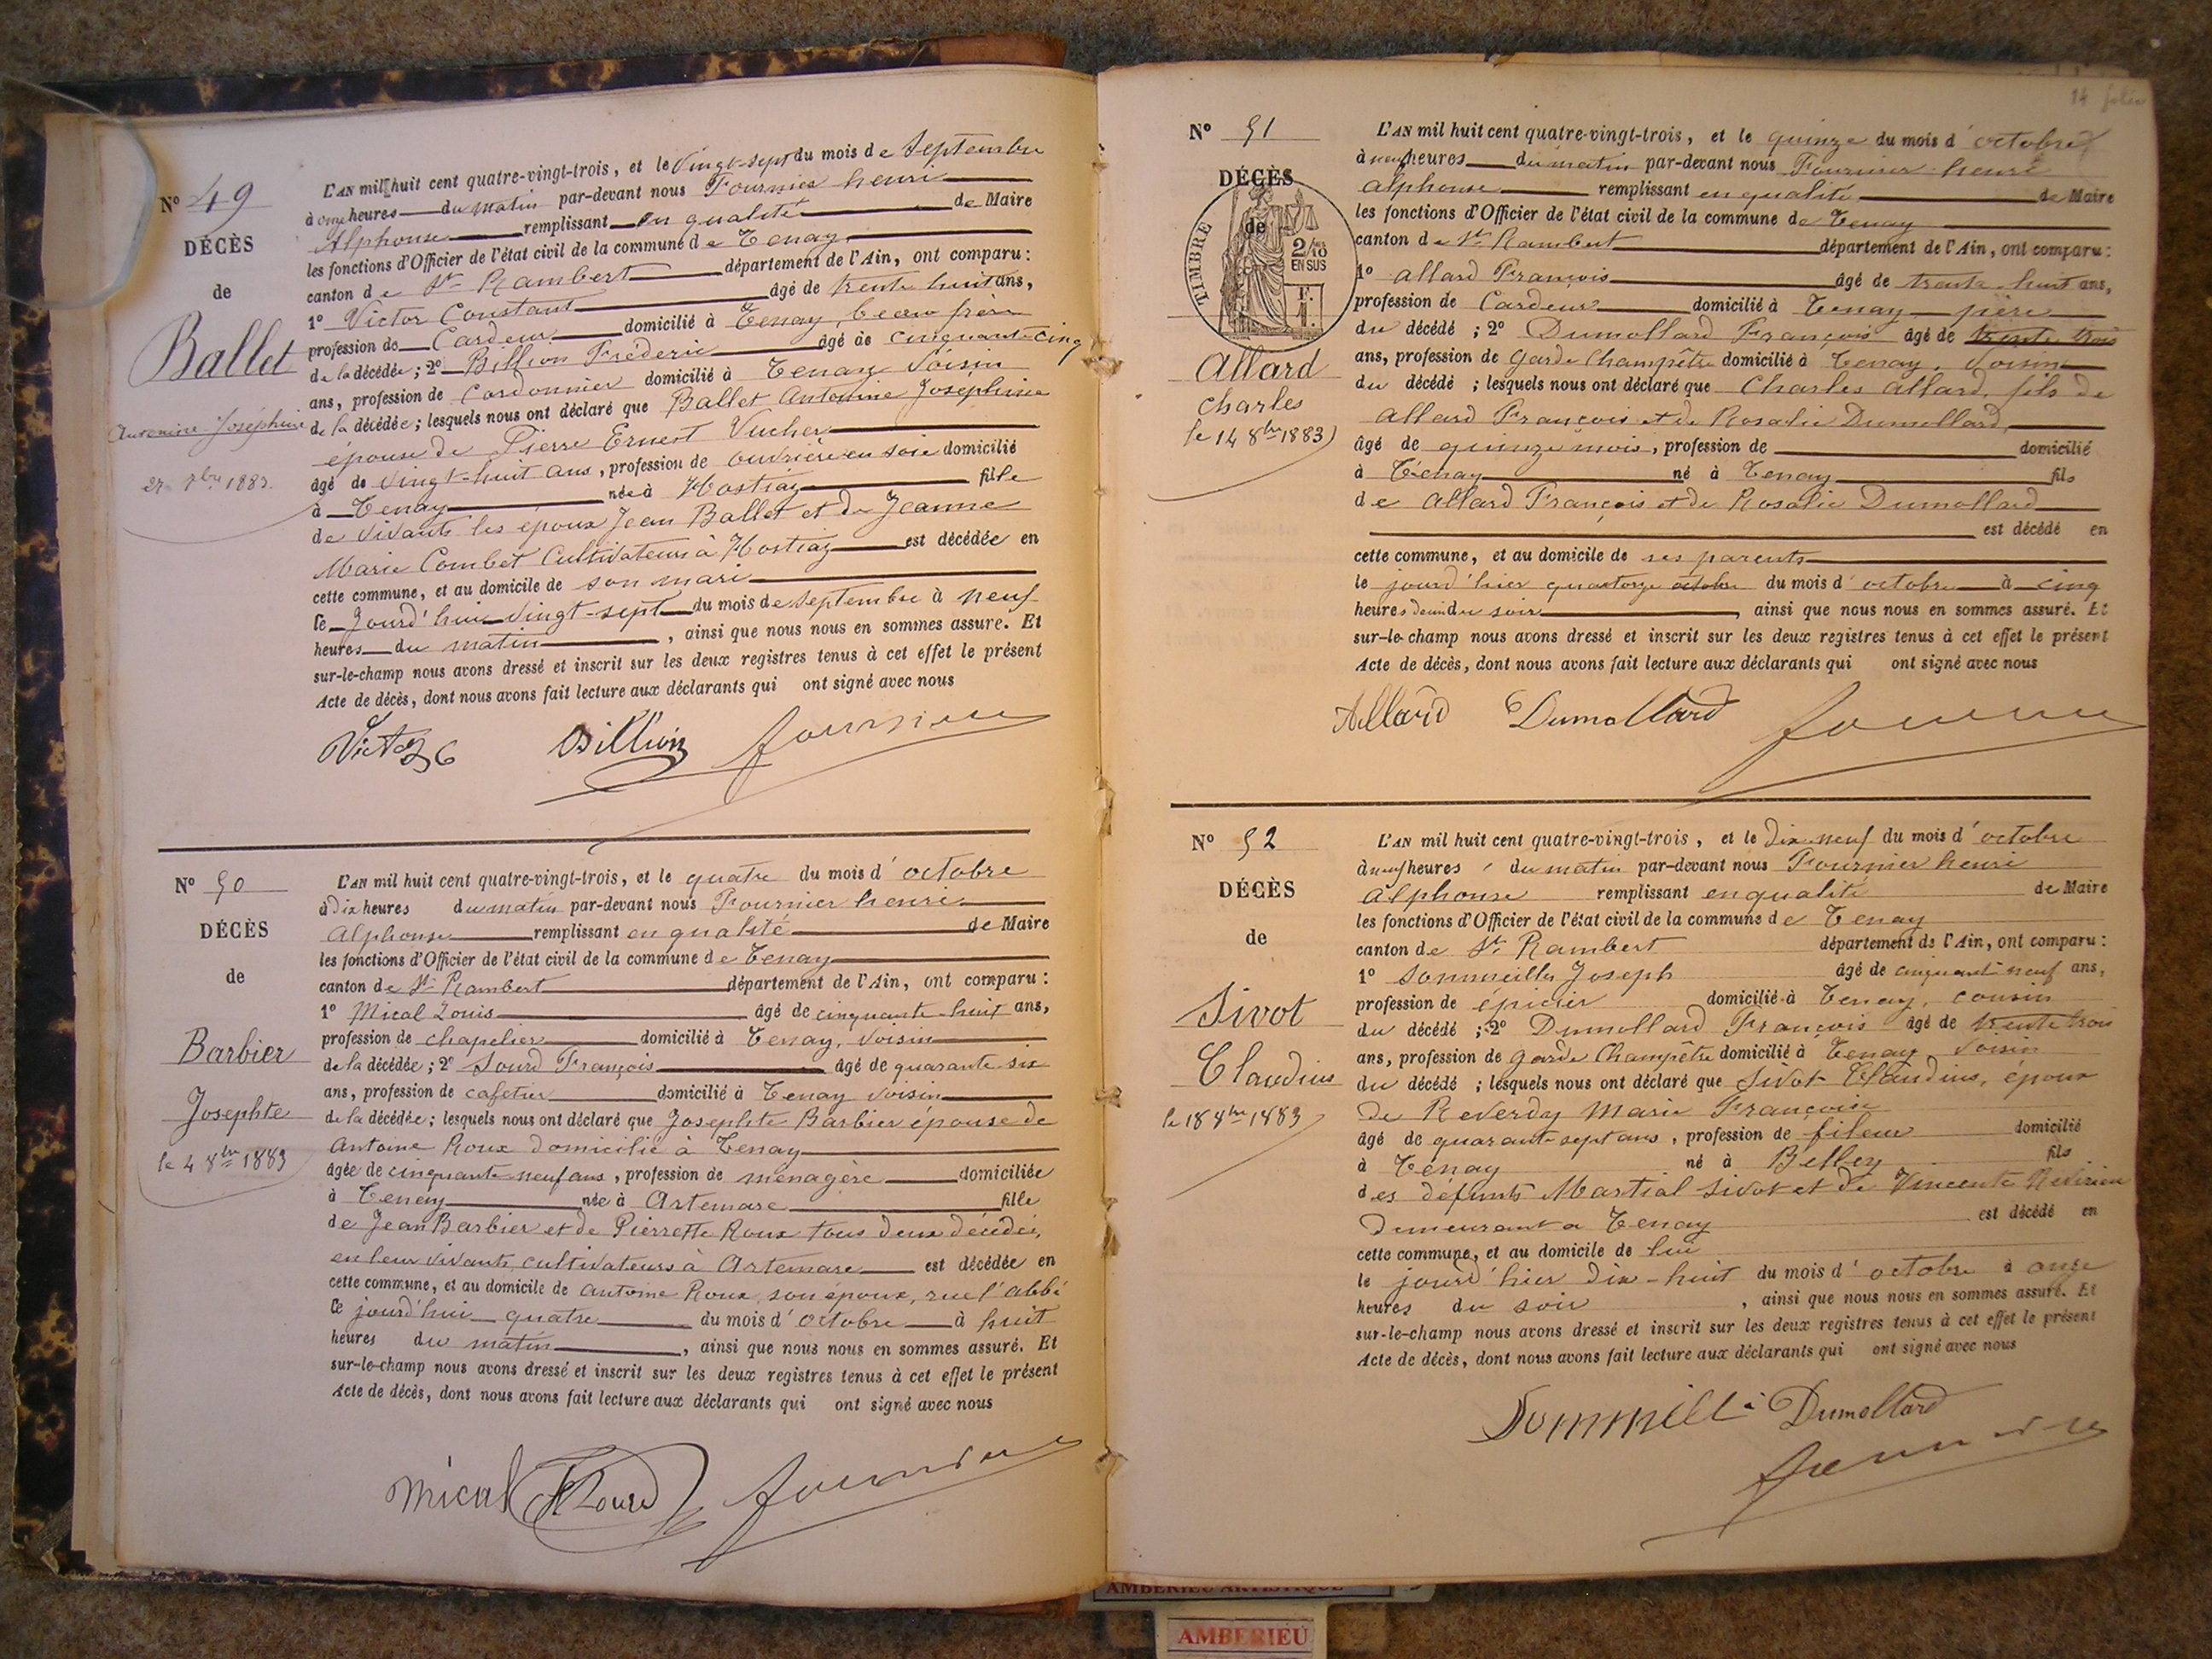 N° 49
DÉCÈS
de
Ballet
Antonine Joséphine
27 7bre 1883.
L'AN mil huit cent quatre-vingt-trois, et le Vingt-sept du mois de Septembre
à onze heures du matin par-devant nous Fournier henri
Alphonse remplissant en qualité de Maire
les fonctions d'Officier de l'état civil de la commune de Tenay
canton de St Rambert département de l'Ain, ont comparu :
1° Victor Constant âgé de trente huit ans,
profession de Cardeur domicilié à Tenay, beau frère
de la décédée ; 2° Billion Fréderic âgé de cinquante-cinq
ans, profession de Cordonnier domicilié à Tenay Voisin
de la décédée ; lesquels nous ont déclaré que Ballet Antonine Joséphine
épouse de Pierre Ernest Vucher
âgé de Vingt-huit ans, profession de Ouvrière en soie domicilié
à Tenay née à Hostiaz fille
de Vivants les époux Jean Ballet et de Jeanne
Marie Combet Cultivateurs à Hostiaz est décédée en
cette commune, et au domicile de son mari
le Jourd'hui Vingt-sept du mois de Septembre à neuf
heures du matin, ainsi que nous nous en sommes assuré. Et
sur-le-champ nous avons dressé et inscrit sur les deux registres tenus à cet effet le présent
Acte de décès, dont nous avons fait lecture aux déclarants qui ont signé avec nous
Billion fournier
N° 50
DÉCÈS
de
Barbier
Josephte
le 4 8bre 1883
L'AN mil huit cent quatre-vingt-trois, et le quatre du mois d'octobre
à dix heures du matin par-devant nous Fournier henri
Alphonse remplissant en qualité de Maire
les fonctions d'Officier de l'état civil de la commune de Tenay
canton de St Rambert département de l'Ain, ont comparu :
1° Mical Louis âgé de cinquante-huit ans,
profession de chapelier domicilié à Tenay, Voisin
de la décédée ; 2° Sourd François âgé de quarante-six
ans, profession de cafetier domicilié à Tenay Voisin
de la décédée ; lesquels nous ont déclaré que Josephte Barbier épouse de
Antoine Roux domicilié à Tenay
âgée de cinquante-neuf ans, profession de ménagère domiciliée
à Tenay née à Artemare fille
de Jean Barbier et de Pierrette Roux tous deux décédés,
en leur vivants, cultivateurs à Artemare est décédée en
cette commune, et au domicile de Antoine Roux, son époux, rue l'abbé
Ce jourd'hui quatre du mois d'octobre à huit
heures du matin, ainsi que nous nous en sommes assuré. Et
sur-le-champ nous avons dressé et inscrit sur les deux registres tenus à cet effet le présent
Acte de décès, dont nous avons fait lecture aux déclarants qui ont signé avec nous
mical Sourd fournier
14
N° 51
DÉCÈS
de
TIMBRE
2/10
EN SUS
Allard
Charles
le 14 8bre 1883
L'AN mil huit cent quatre-vingt-trois, et le quinze du mois d'octobre
à neuf heures du matin par-devant nous Fournier henri
Alphonse remplissant en qualité de Maire
les fonctions d'Officier de l'état civil de la commune de Tenay
canton de St Rambert département de l'Ain, ont comparu :
1° Allard François âgé de trente-huit ans,
profession de Cardeur domicilié à Tenay père
du décédé ; 2° Dumollard François âgé de trente trois
ans, profession de Garde Champêtre domicilié à Tenay, Voisin
du décédé ; lesquels nous ont déclaré que Charles Allard, fils de
Allard François et de Rosalie Dumollard,
âgé de quinze mois, profession de domicilié
à Tenay né à Tenay fils
de Allard François et de Rosalie Dumollard
est décédé en
cette commune, et au domicile de ses parents
le jourd'hier quatorze octobre du mois d'octobre à cinq
heures demi du soir, ainsi que nous nous en sommes assuré. Et
sur-le-champ nous avons dressé et inscrit sur les deux registres tenus à cet effet le présent
Acte de décès, dont nous avons fait lecture aux déclarants qui ont signé avec nous
Allard Dumollard fournier
N° 52
DÉCÈS
de
Sivot
Claudius
le 18 8bre 1883
L'AN mil huit cent quatre-vingt-trois, et le dix-neuf du mois d'octobre
à neuf heures du matin par-devant nous Fournier henri
Alphonse remplissant en qualité de Maire
les fonctions d'Officier de l'état civil de la commune de Tenay
canton de St Rambert département de l'Ain, ont comparu :
1° Sommeiller Joseph âgé de cinquante-neuf ans,
profession de épicier domicilié à Tenay, cousin
du décédé ; 2° Dumollard François âgé de trente trois
ans, profession de Garde Champêtre domicilié à Tenay Voisin
du décédé ; lesquels nous ont déclaré que Sivot Claudius, époux
de Reverdy Marie Françoise
âgé de quarante-sept ans, profession de fileur domicilié
à Tenay né à Belley fils
des défunts Martial Sivot et de Vincente
Demeurant à Tenay est décédé en
cette commune, et au domicile de lui
le jourd'hier dix-huit du mois d'octobre à onze
heures du soir, ainsi que nous nous en sommes assuré. Et
sur-le-champ nous avons dressé et inscrit sur les deux registres tenus à cet effet le présent
Acte de décès, dont nous avons fait lecture aux déclarants qui ont signé avec nous
Dumollard
fournier
AMBERIEU ARTISTIQUE
AMBERIEU